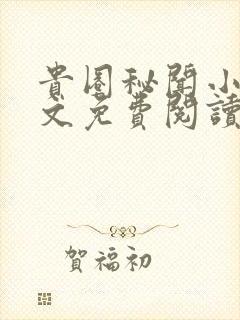 貴圈秘聞小
文免費閱讀
賀福初